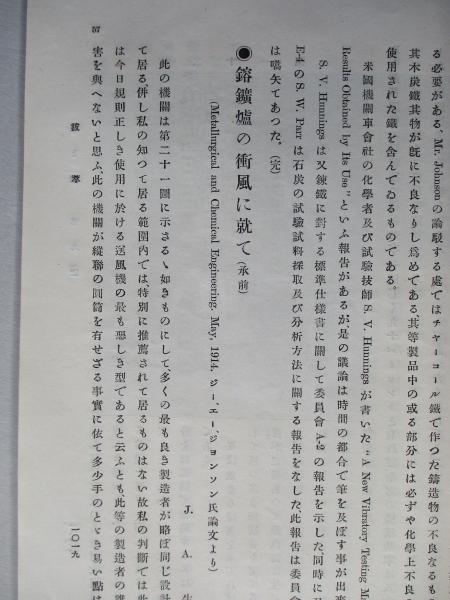 る必要がある、Mr. Johnsonの論駁する處ではチャーコール鐵で作つた鑄造物の不良なるもの
其木炭鐵其物が既に不良なりし爲めである其等製品中の或る部分には必ずや化學上不良
使用された鐵を含んでゐるものである。
米國機關車會社の化學者及び試驗技師 S. V. Hunnings が書いた “A New Vibratory Testing Ma
Results Obtained by Its Use” といふ報告があるが、是の議論は時間の都合で筆を及ぼす事が出來
S. V. Hunnings は又鍊鐵に對する標準仕樣書に關して委員會 A-2 の報告を示した、同時に
E-4 の S. W. Parr は石炭の試驗試料採取及び分析方法に關する報告をなした、此報告は委員會
は嚆矢であつた。(完)
●鎔鑛爐の衝風に就て(承前)
(Metallurgical and Chemical Engineering. May, 1914. ジー、エー、ジョンソン氏論文より)
J. A. 生
此の機關は第二十一圖に示さるゝ如きものにして、多くの最も良き製造者が略ぼ同じ設計
て居る併し私の知つて居る範圍內では、特別に推薦されて居るものはない故私の判斷では此
は今日規則正しき使用に於ける送風機の最も惡しき型であると云ふとも、此等の製造者の誰
害を與へないと思ふ、此の機關が縱聯の圓筒を有せざる事實に依て多少手のとゞき易い點は
拔萃
57
一〇一九